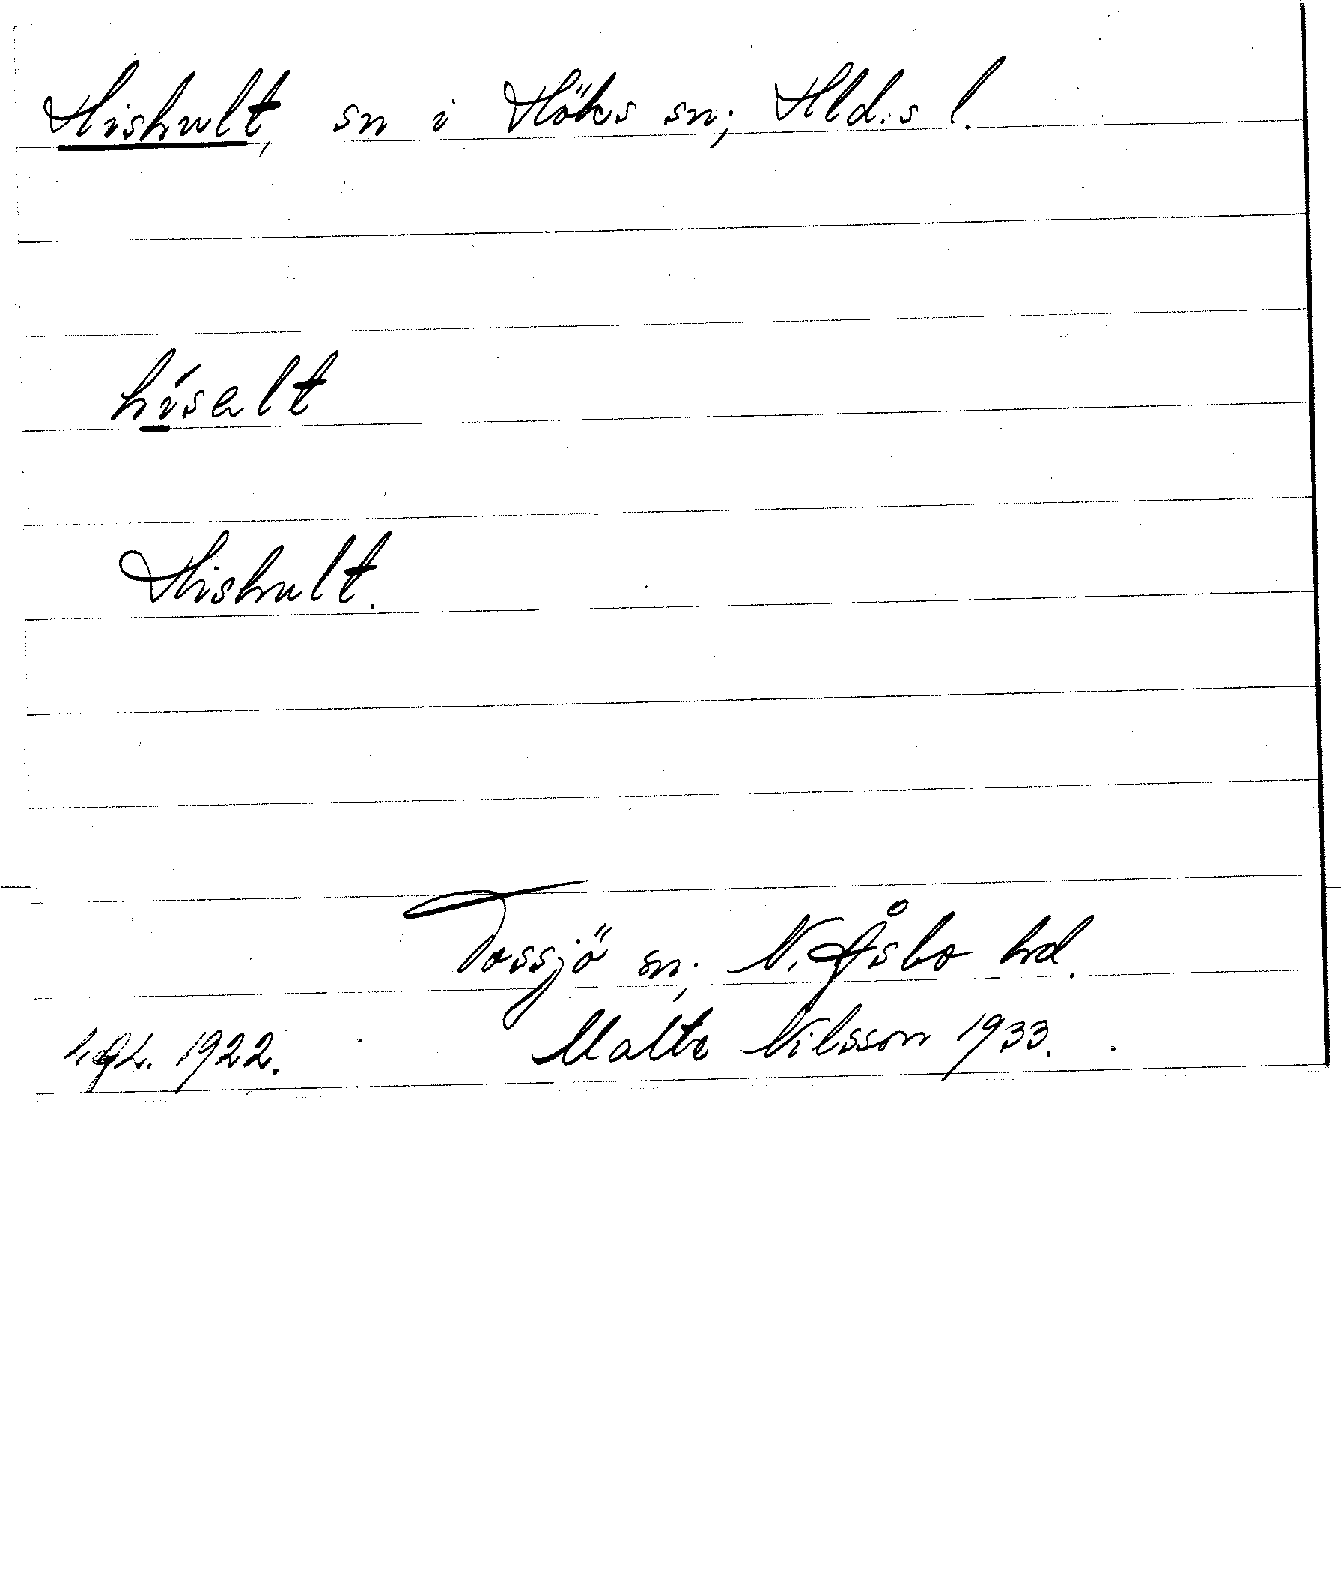 Hishult, sn i Höks sn; Hld:s l.
hísalt
Hishult.
Tossjö sn; N. Åsbo hd.
1922. Malte Nilsson 1933.